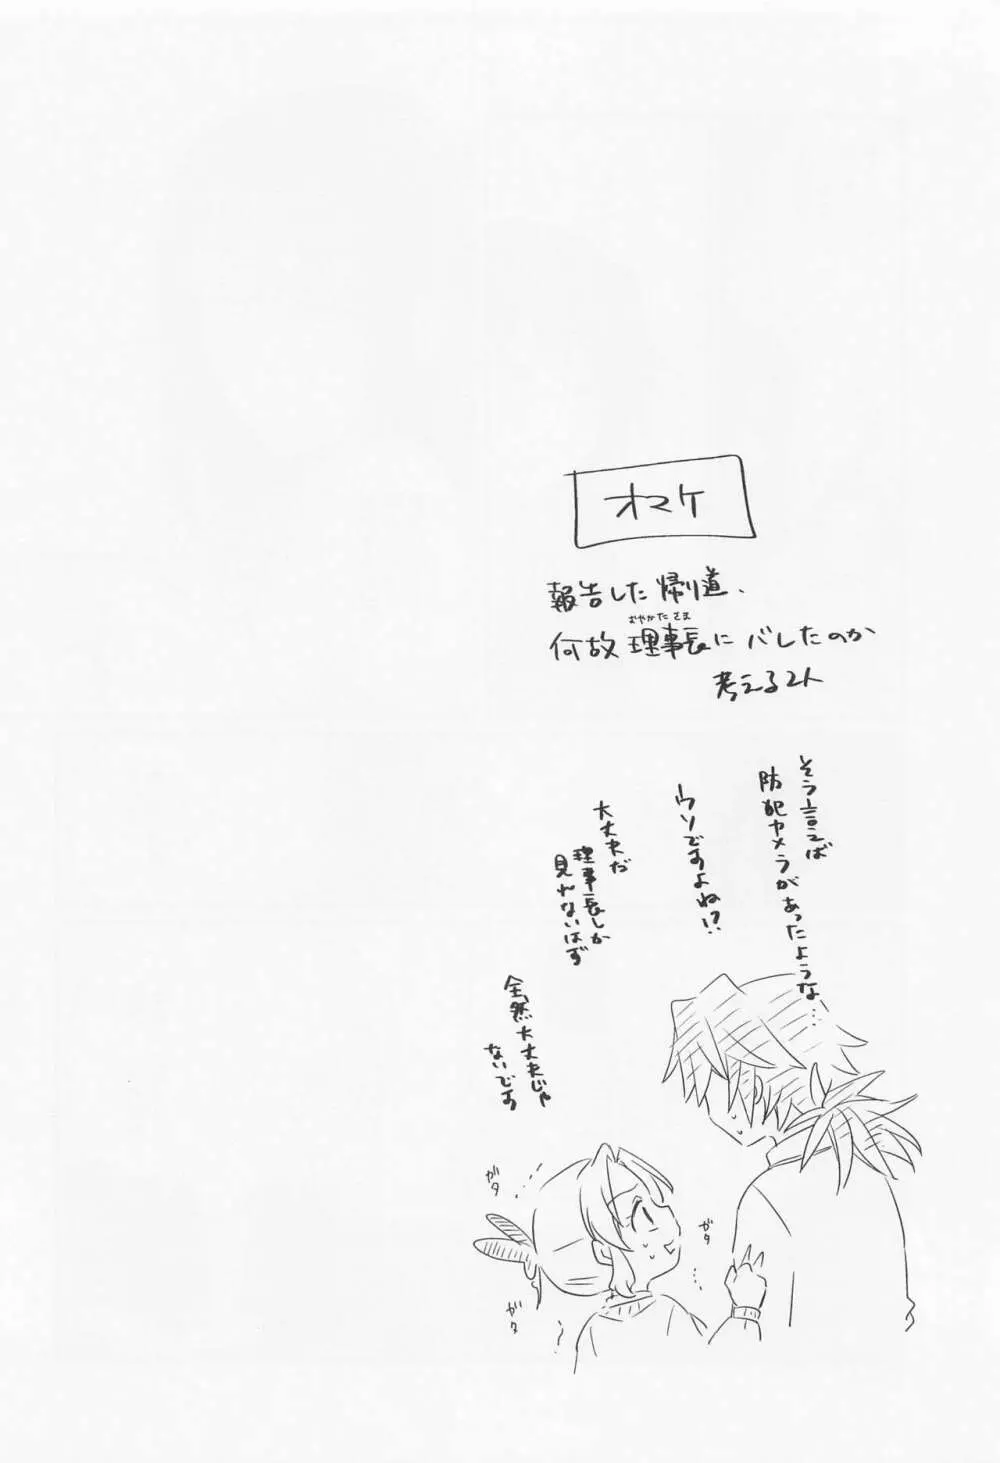 オマケ
報告した帰道、
おやかたさま
何故理事長にバレたのか
考える2人
そう言えば
防犯カメラがあったような…
ウソですよね!?
大丈夫だ
理事長しか
見れないはず
全然大丈夫じゃ
ないです
ガタ
ガタ
ガタ